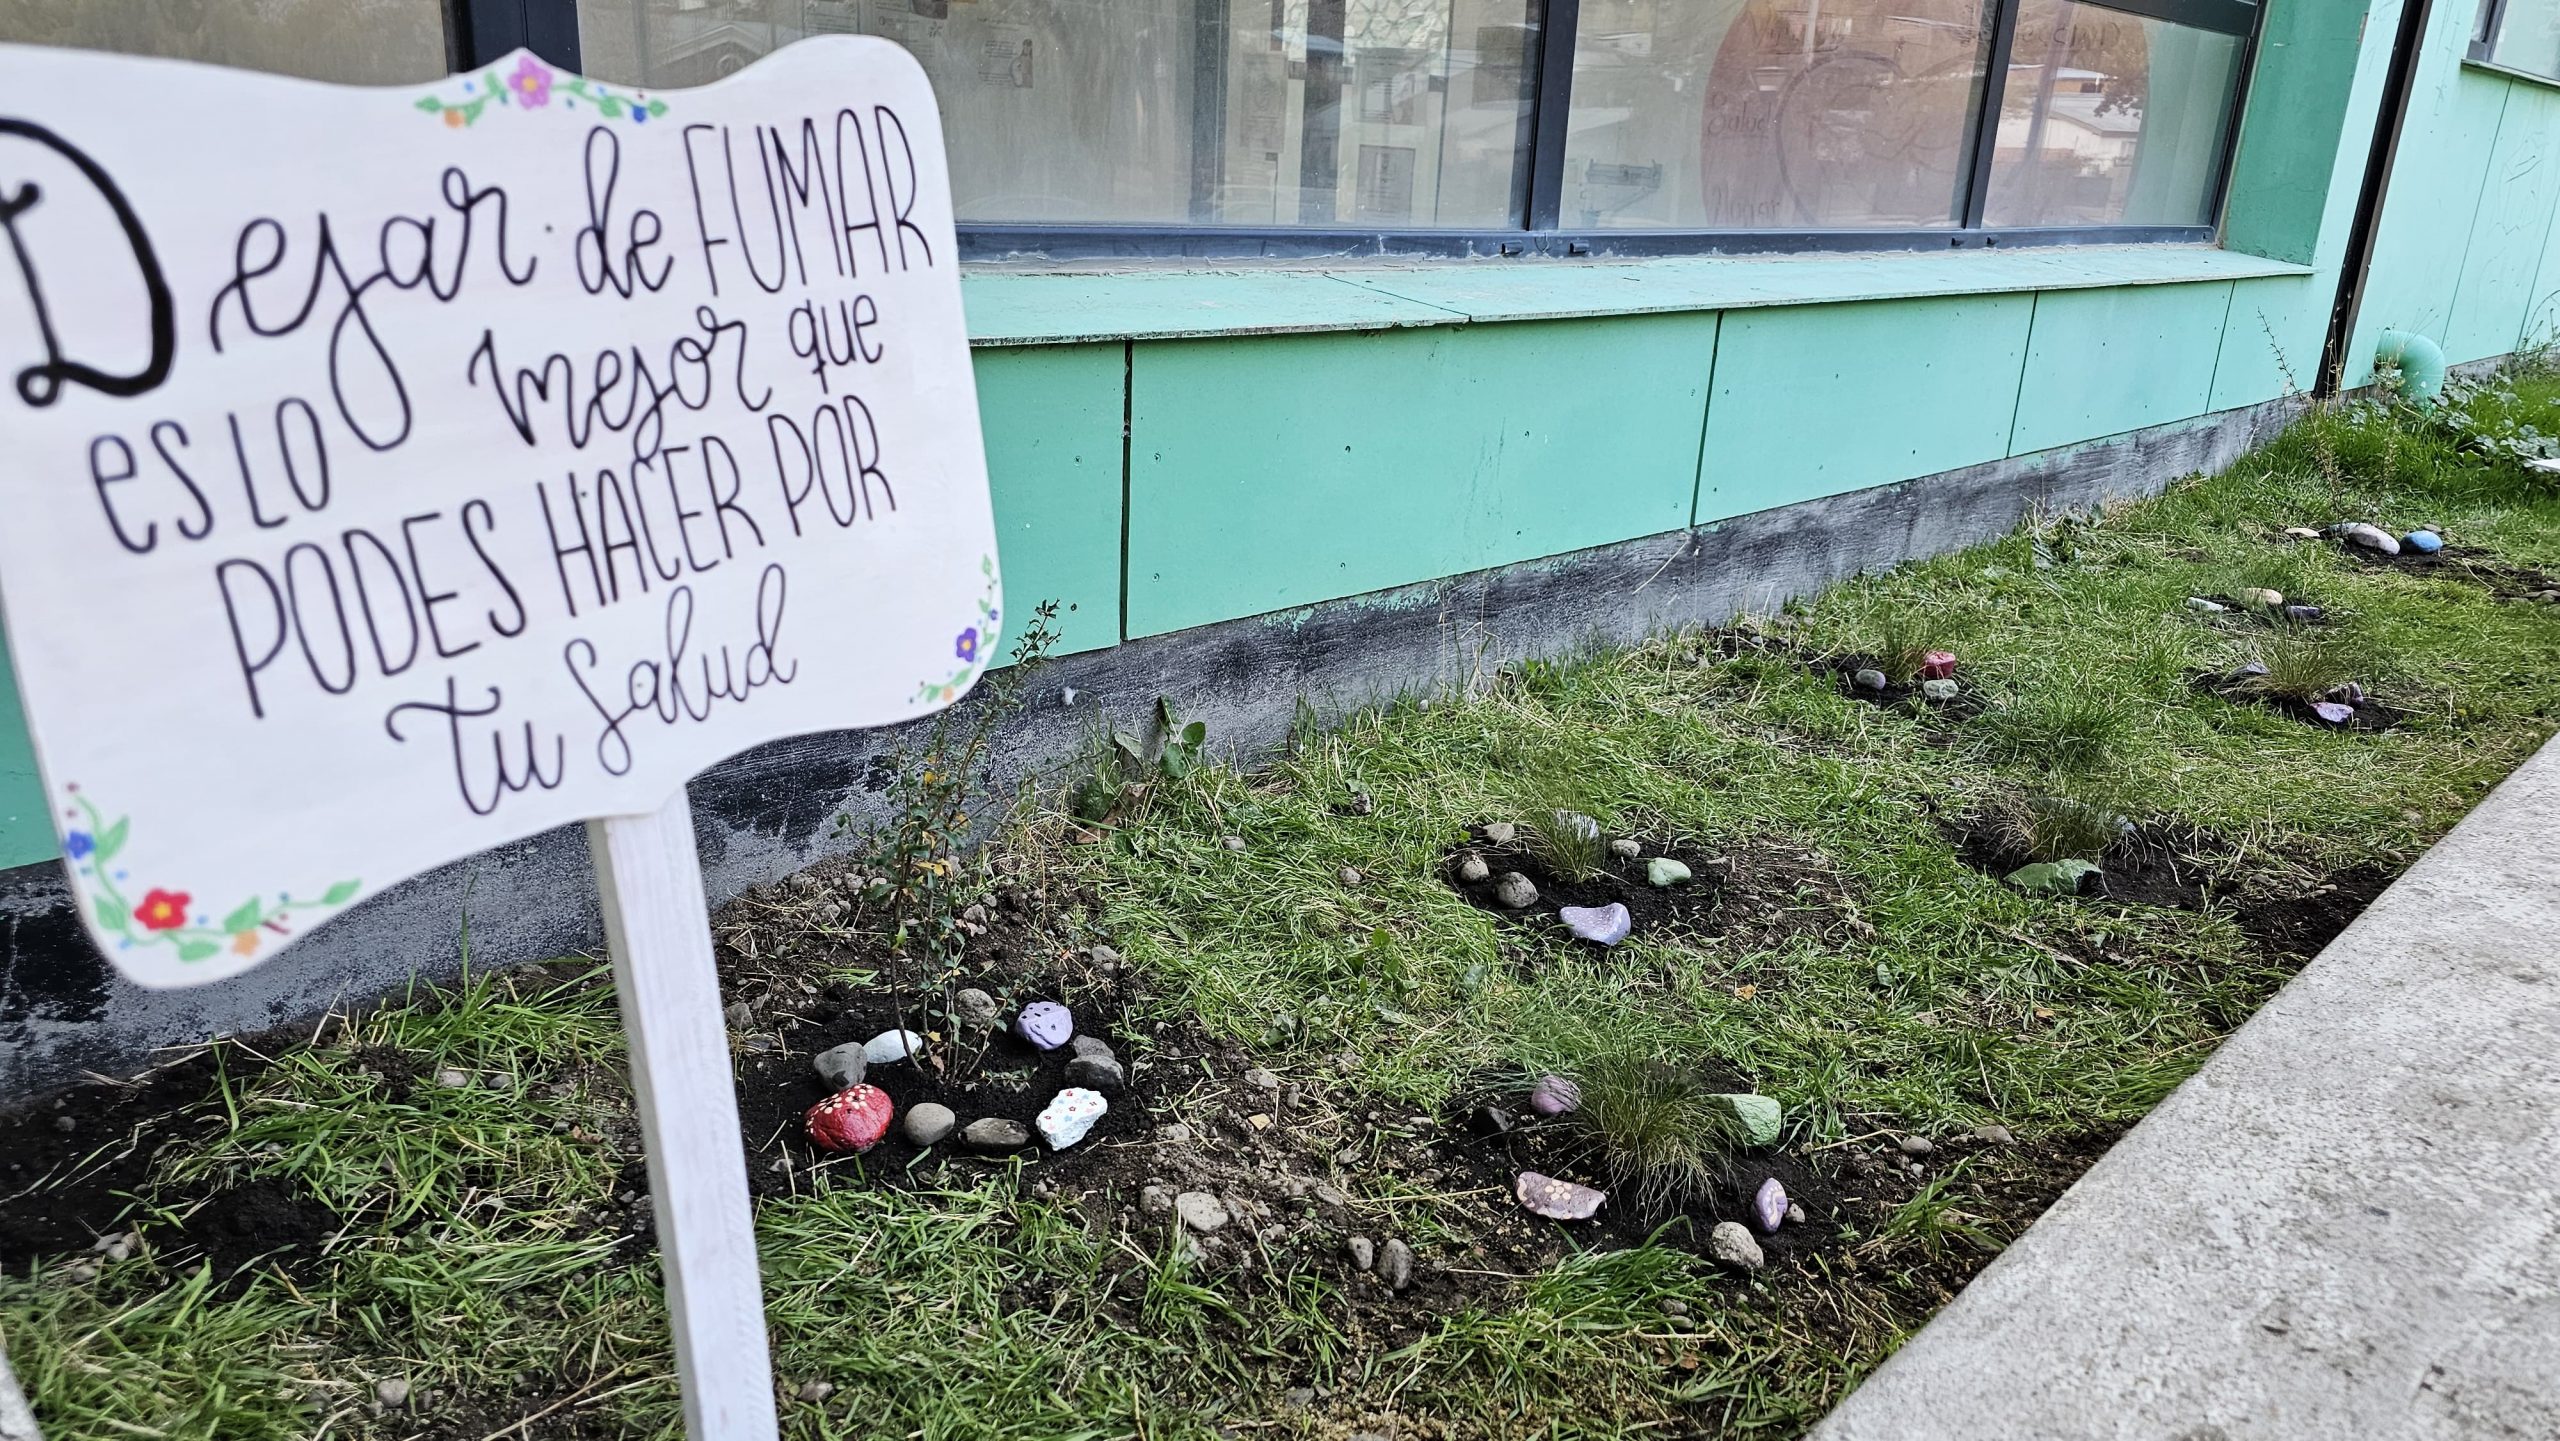 Dejar de FUMAR
es LO mejor que
PODES HACER POR
tu Salud
Salud